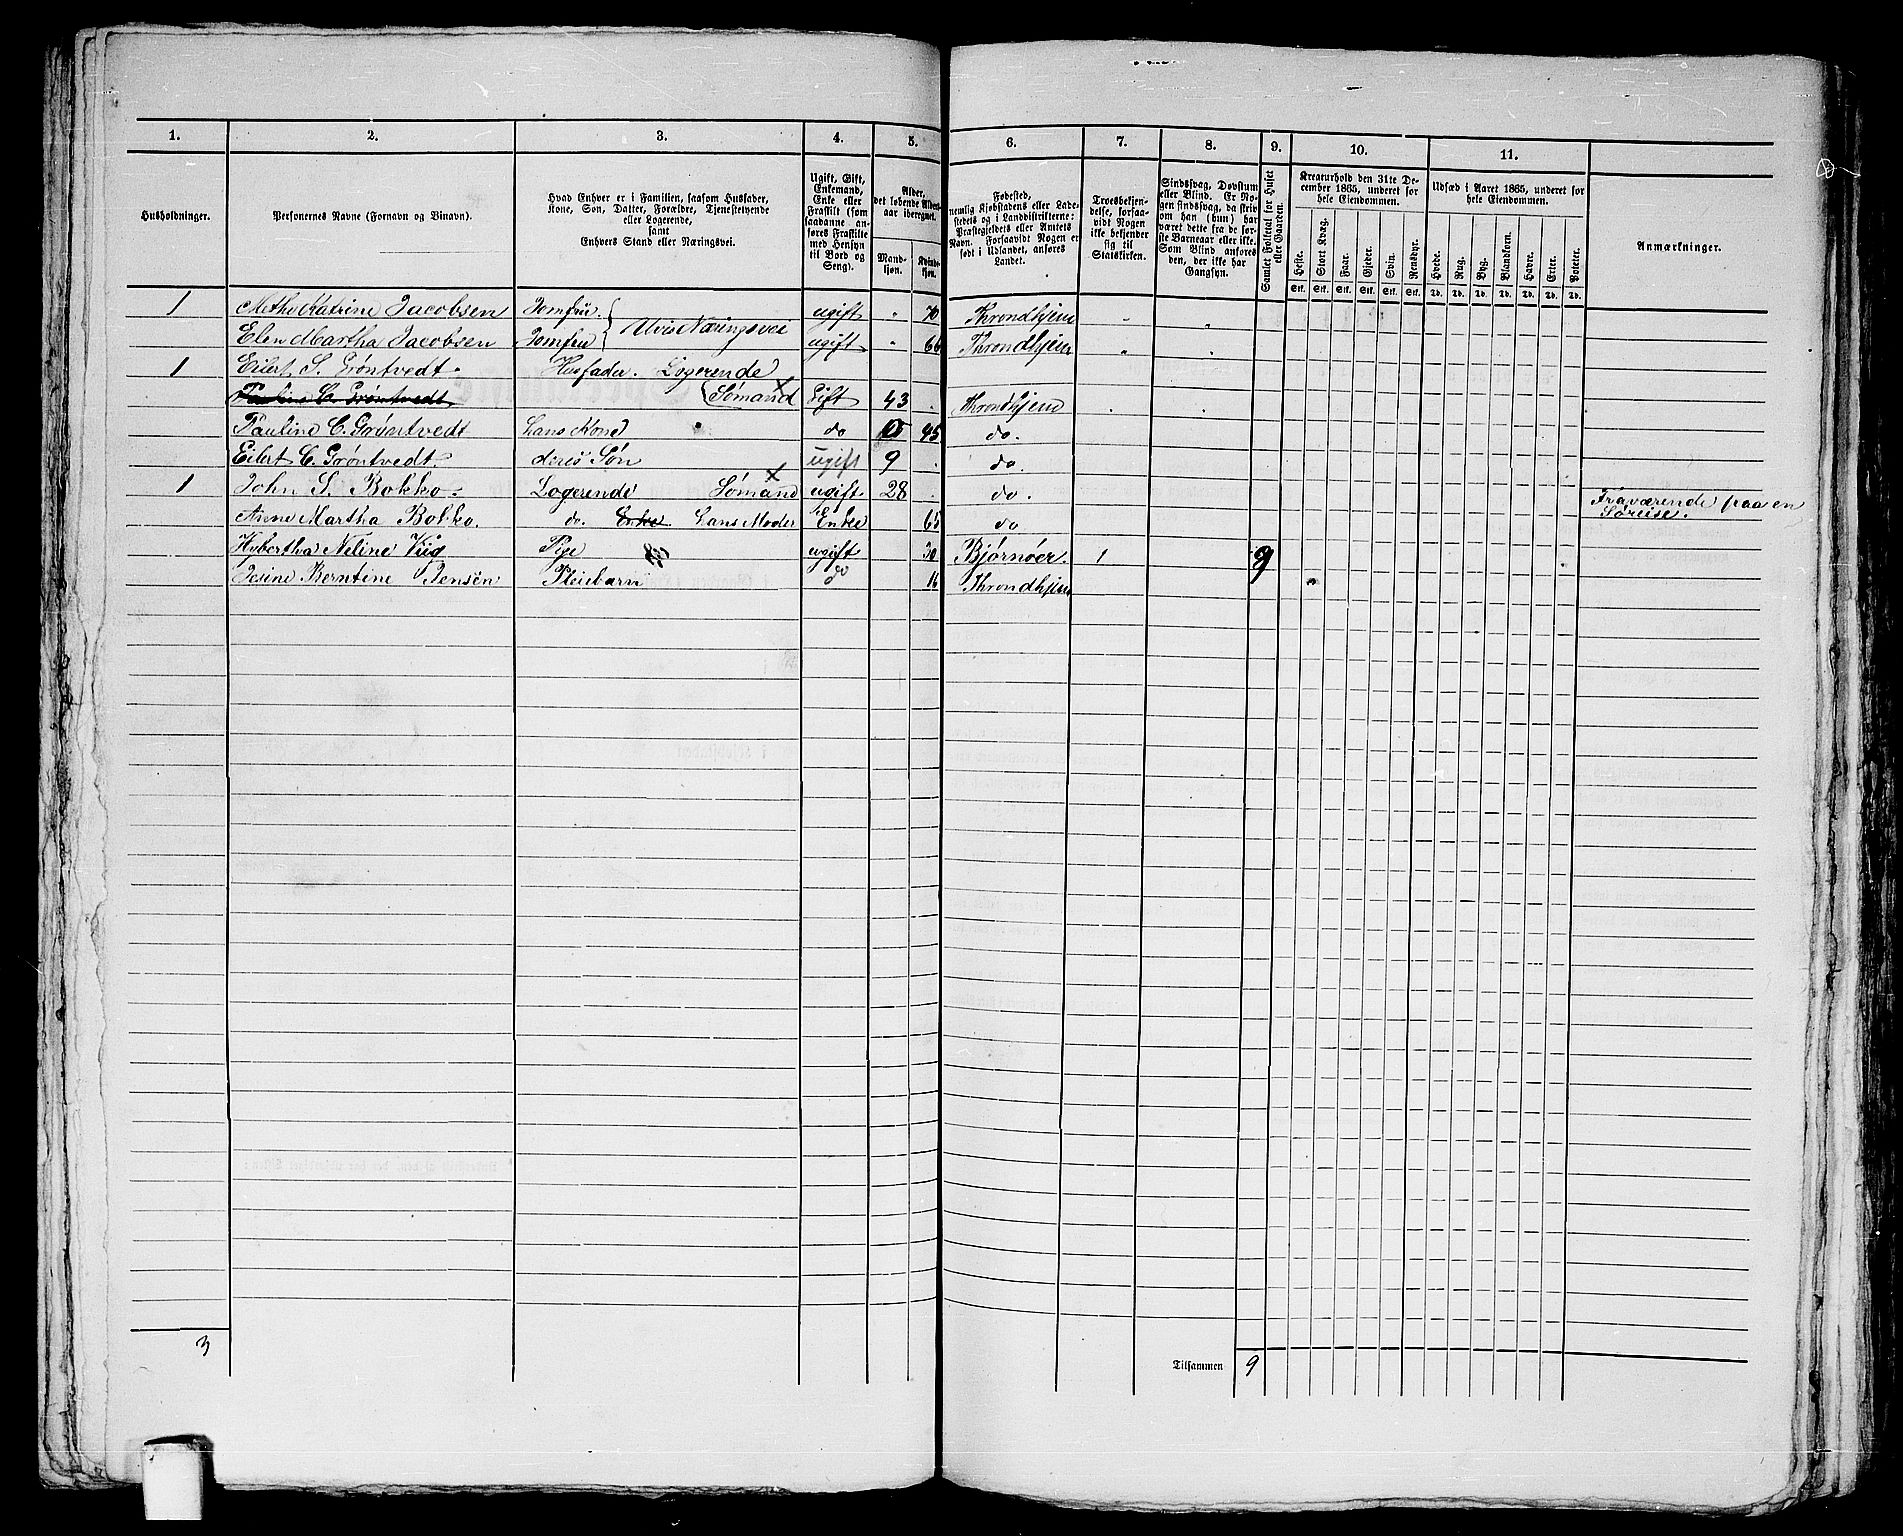 1. 2. 3. 4. 5. 6. 7. 8. 9. 10. 11.
Husholdninger.
Personernes Navne (Fornavn og Binavn).
Hvad Enhver er i Familien, saasom Husfader,
Kone, Søn, Datter, Forældre, Tjenestetyende
eller Logerende,
samt
Enhvers Stand eller Næringsvei.
Ugift, Gift,
Enkemand,
Enke eller
Fraskilt (som
saadanne an-
føres Fraskilte
med Hensyn
til Bord og
Seng).
Alder,
det løbende Alders-
aar iberegnet.
Mand-
kjøn.
Kvinde-
kjøn.
Fødested,
nemlig Kjøbstadens eller Lade-
stedets og i Landdistrikterne:
Præstegjeldets eller Amtets
Navn. Forsaavidt Nogen er
født i Udlandet, anføres
Landet.
Troesbekjen-
delse, forsaa-
vidt Nogen
ikke bekjender
sig til
Statskirken.
Sindssvag, Døvstum
eller Blind. Er No-
gen sindssvag, da skriv
om han (hun) har
været dette fra de før-
ste Barneaar eller ikke.
Som Blind anføres
den, der ikke har
Gangsyn.
Samlet Folketal for Huset
eller Gaarden.
Kreaturhold den 31te De-
cember 1865, underet for
hele Eiendommen.
Heste. Stort Kvæg. Faar. Gjeder. Svin. Rensdyr.
Stk. Stk. Stk. Stk. Stk. Stk.
Udsæd i Aaret 1865, underet for
hele Eiendommen.
Hvede. Rug. Byg. Blandkorn. Havre. Erter. Poteter.
Td. Td. Td. Td. Td. Td. Td.
Anmærkninger.
1 Methe Katrine Jacobsen Jomfru. ugift " 70 Throndhjem " "
Elen Martha Jacobsen Jomfru Uvis Næringsvei ugift " 66 Throndhjem " "
1 Eilert S. Grøntvedt. Husfader. Logerende
Pauline C. Grøntvedt Sømand Gift 43 . Throndhjem . .
Pauline C. Grøntvedt Hans Kone do 45 do.
Eilert C. Grøntvedt. deres Søn ugift 9 . do.
1 John S. Bokko. Logerende Sømand ugift 28 . do. Fraværende paa en
Søreise.
Anne Martha Bokko. do. Enke Hans Moder Enke 65 do
Hybertha Neline Viig Pige ugift 30 Bjørnøer. 1 9
Jesine Berntine Jensen Pleiebarn do 16 Throndhjem
3
Tilsammen 9